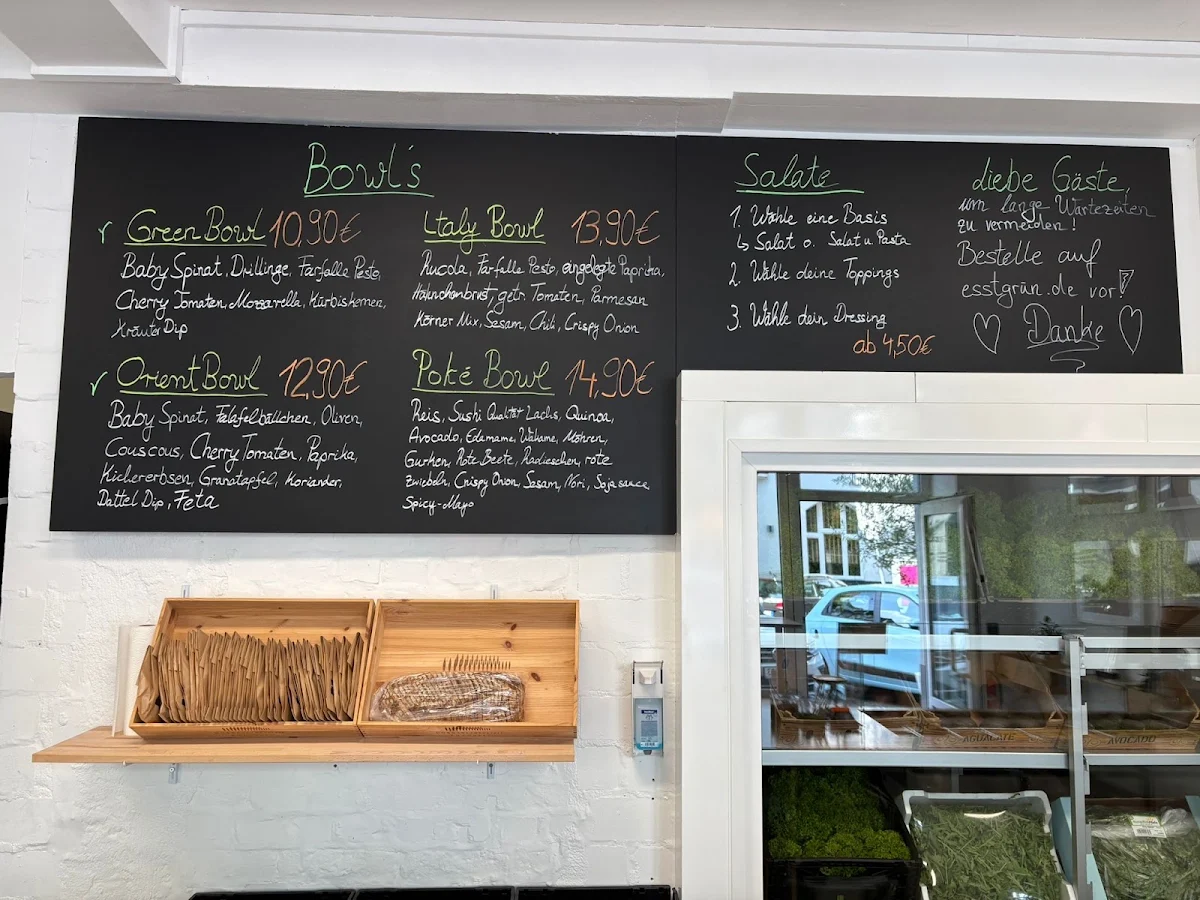 Bowl's
✓ Green Bowl 10,90€
Baby Spinat, Drillinge, Farfalle Pesto,
Cherry Tomaten, Mozzarella, Kürbiskernen,
Kräuter Dip
✓ Orient Bowl 12,90€
Baby Spinat, Falafelbällchen, Oliven,
Couscous, Cherry Tomaten, Paprika,
Kichererbsen, Granatapfel, Koriander,
Dattel Dip, Feta
Italy Bowl 13,90€
Rucola, Farfalle Pesto, eingelegte Paprika,
Hähnchenbrust, getr. Tomaten, Parmesan
Körner Mix, Sesam, Chili, Crispy Onion
Poké Bowl 14,90€
Reis, Sushi Qualität Lachs, Quinoa,
Avocado, Edamame, Wakame, Möhren,
Gurken, Rote Beete, Radieschen, rote
Zwiebeln, Crispy Onion, Sesam, Nori, Sojasauce,
Spicy-Mayo
Salate
1. Wähle eine Basis
↳ Salat o. Salat u. Pasta
2. Wähle deine Toppings
3. Wähle dein Dressing
ab 4,50€
Liebe Gäste,
um lange Wartezeiten
zu vermeiden!
Bestelle auf
esstgrün.de vor!
Danke
AGUACATE
AVOCADO